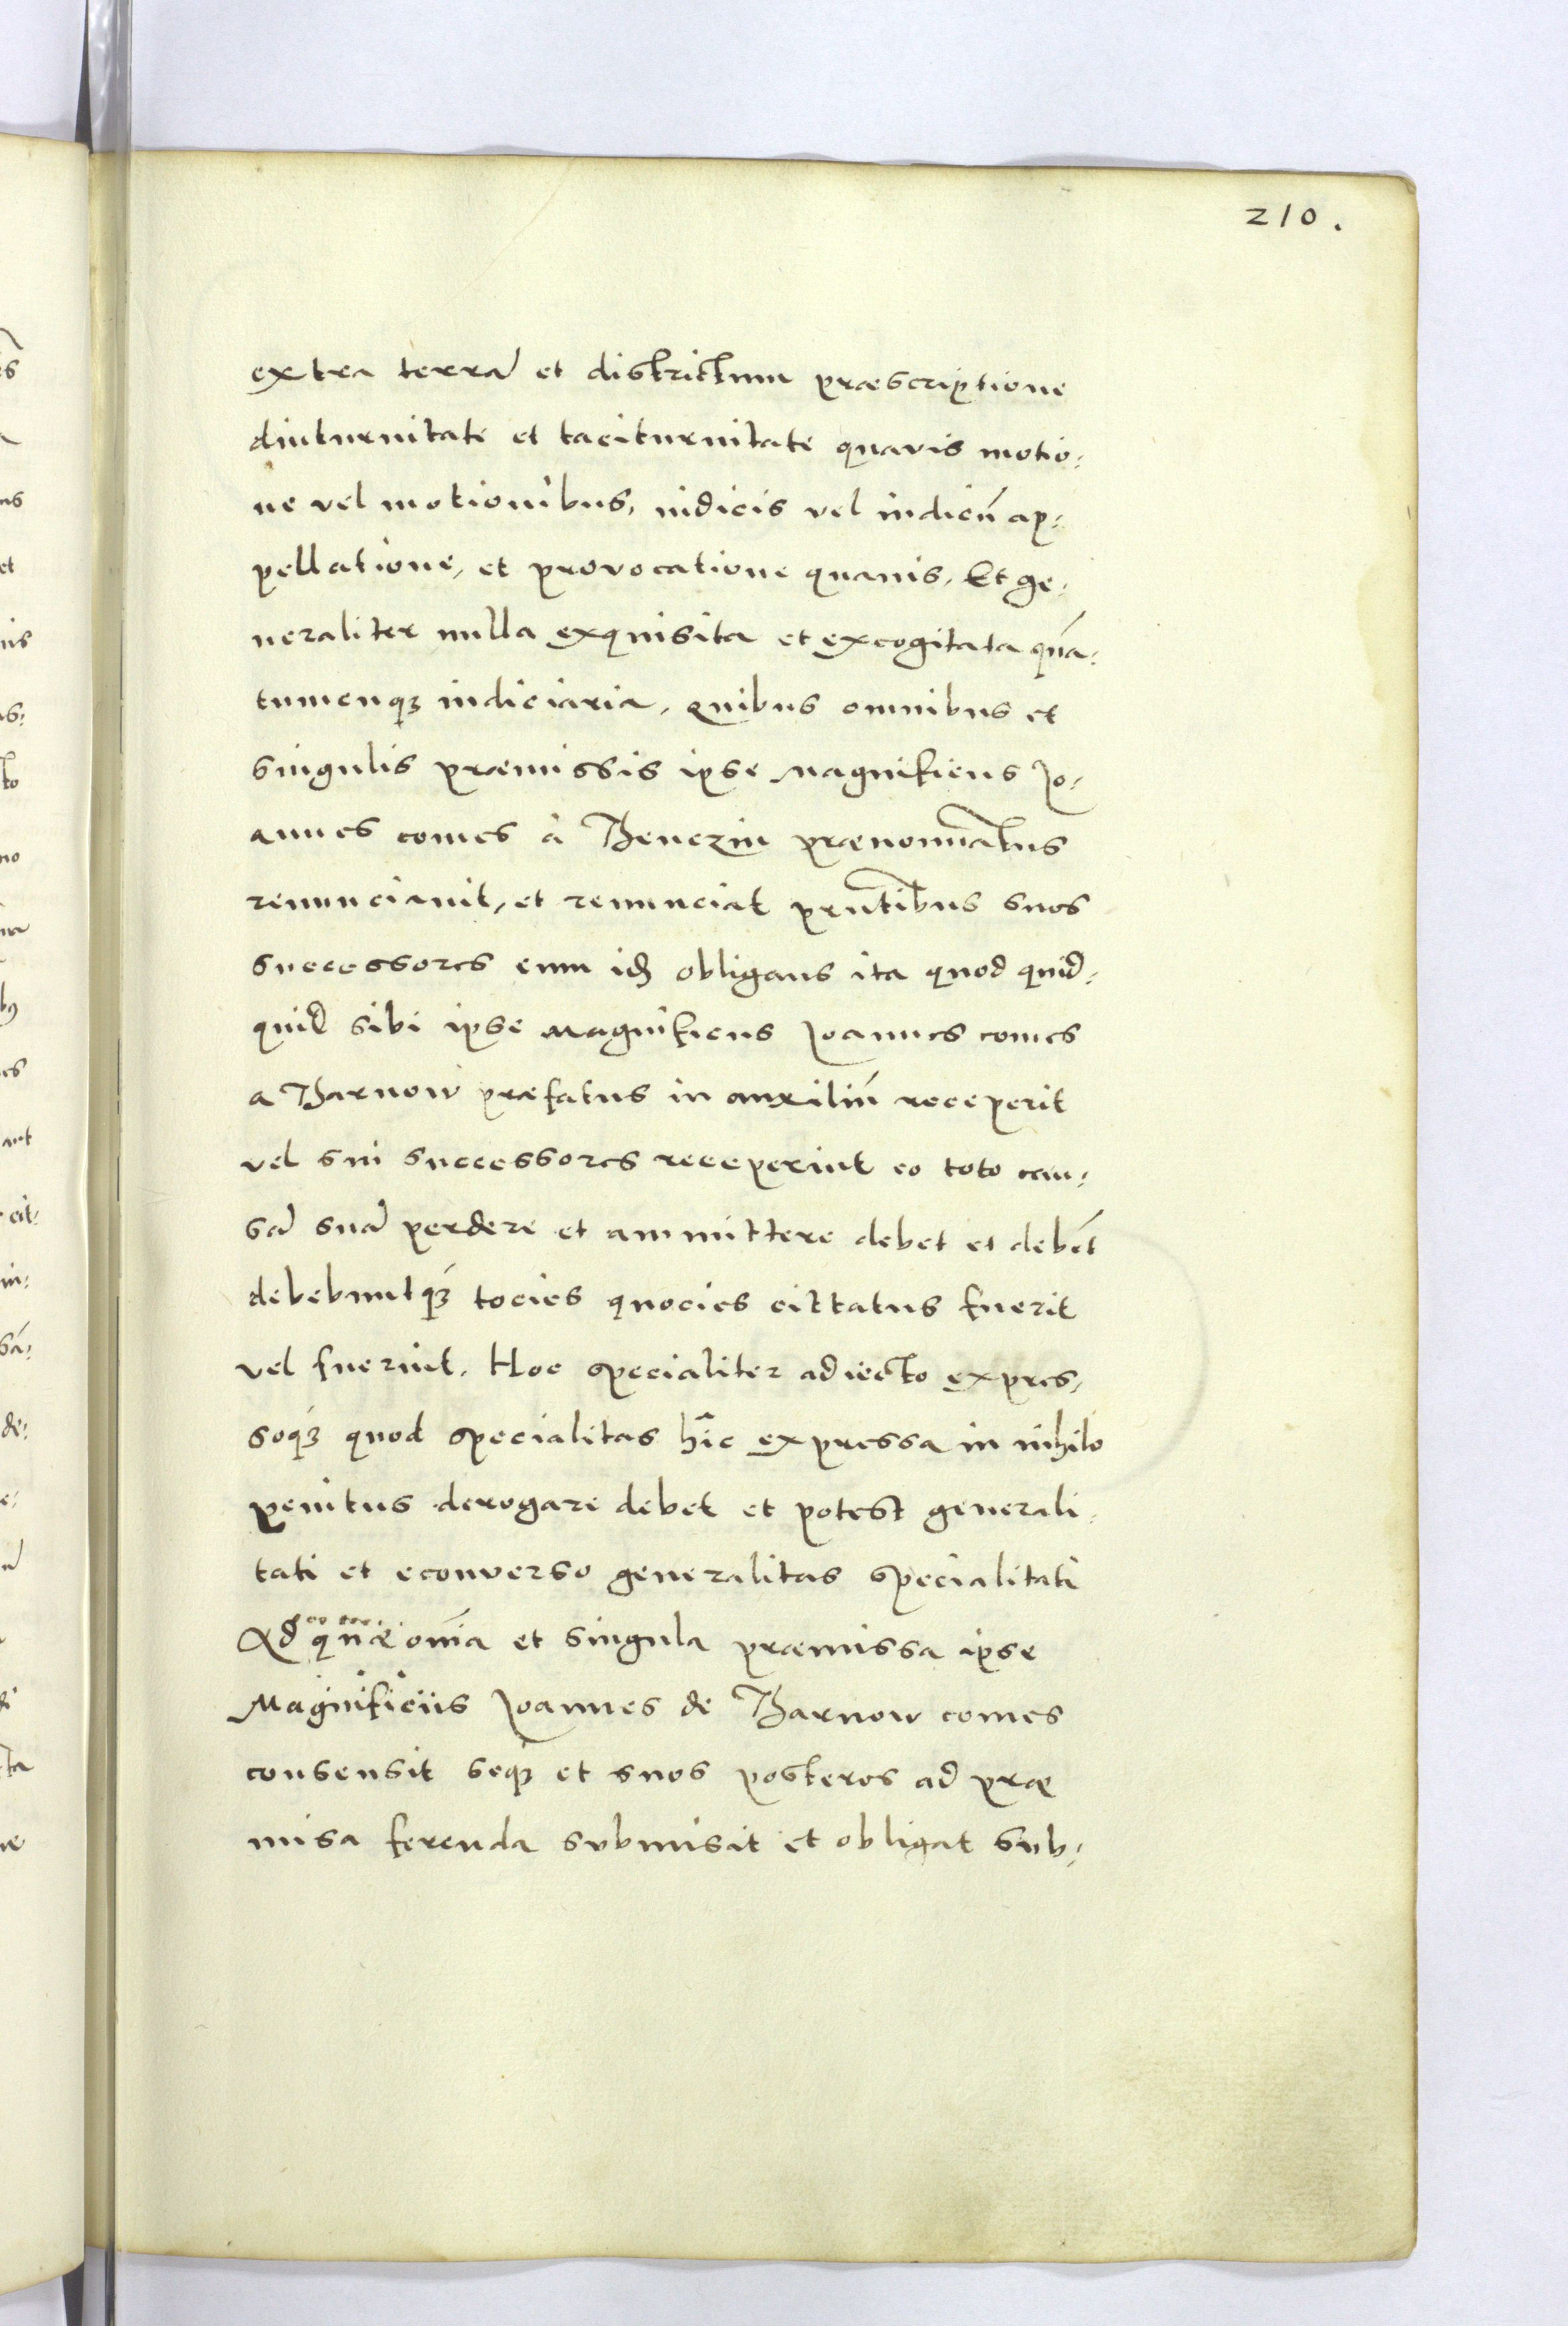 210.
extra terrã et districtum præscriptione
diuturnitate et taciturnitate quavis motio:
ne vel motionibus, iudicis vel iudicũ ap:
pellatione, et provocatione quauis, Et ge:
neraliter nulla exquisita et excogitata quã:
tumcunqȝ iudiciaria, quibus omnibus et
singulis præmissis ipse Magnificus Jo:
annes comes à præno͞minatus
renunciauit, et renunciat pr̃ntibus suos
successores cum obligans ita quod quid:
quid sibi ipse Magnificus Joannes comes
a Tharnow præfatus in auxiliũ receperit
vel sui successores receperint eo toto cau:
sã suã perdere et ammittere debet et debẽt
debebuntqȝ tocies quocies cittatus fuerit
vel fuerint. Hoc specialiter adiecto expres,
soqȝ quod specialitas hîc expressa in nihilo
penitus derogare debet et potest generali:
tati et econverso generalitas specialitati
Ad quæ om̃ia et singula præmissa ipse
Magnificus Joannes de Tharnow comes
consensit seqȝ et suos posteros ad præ
misa ferenda submisit et obligat sub: